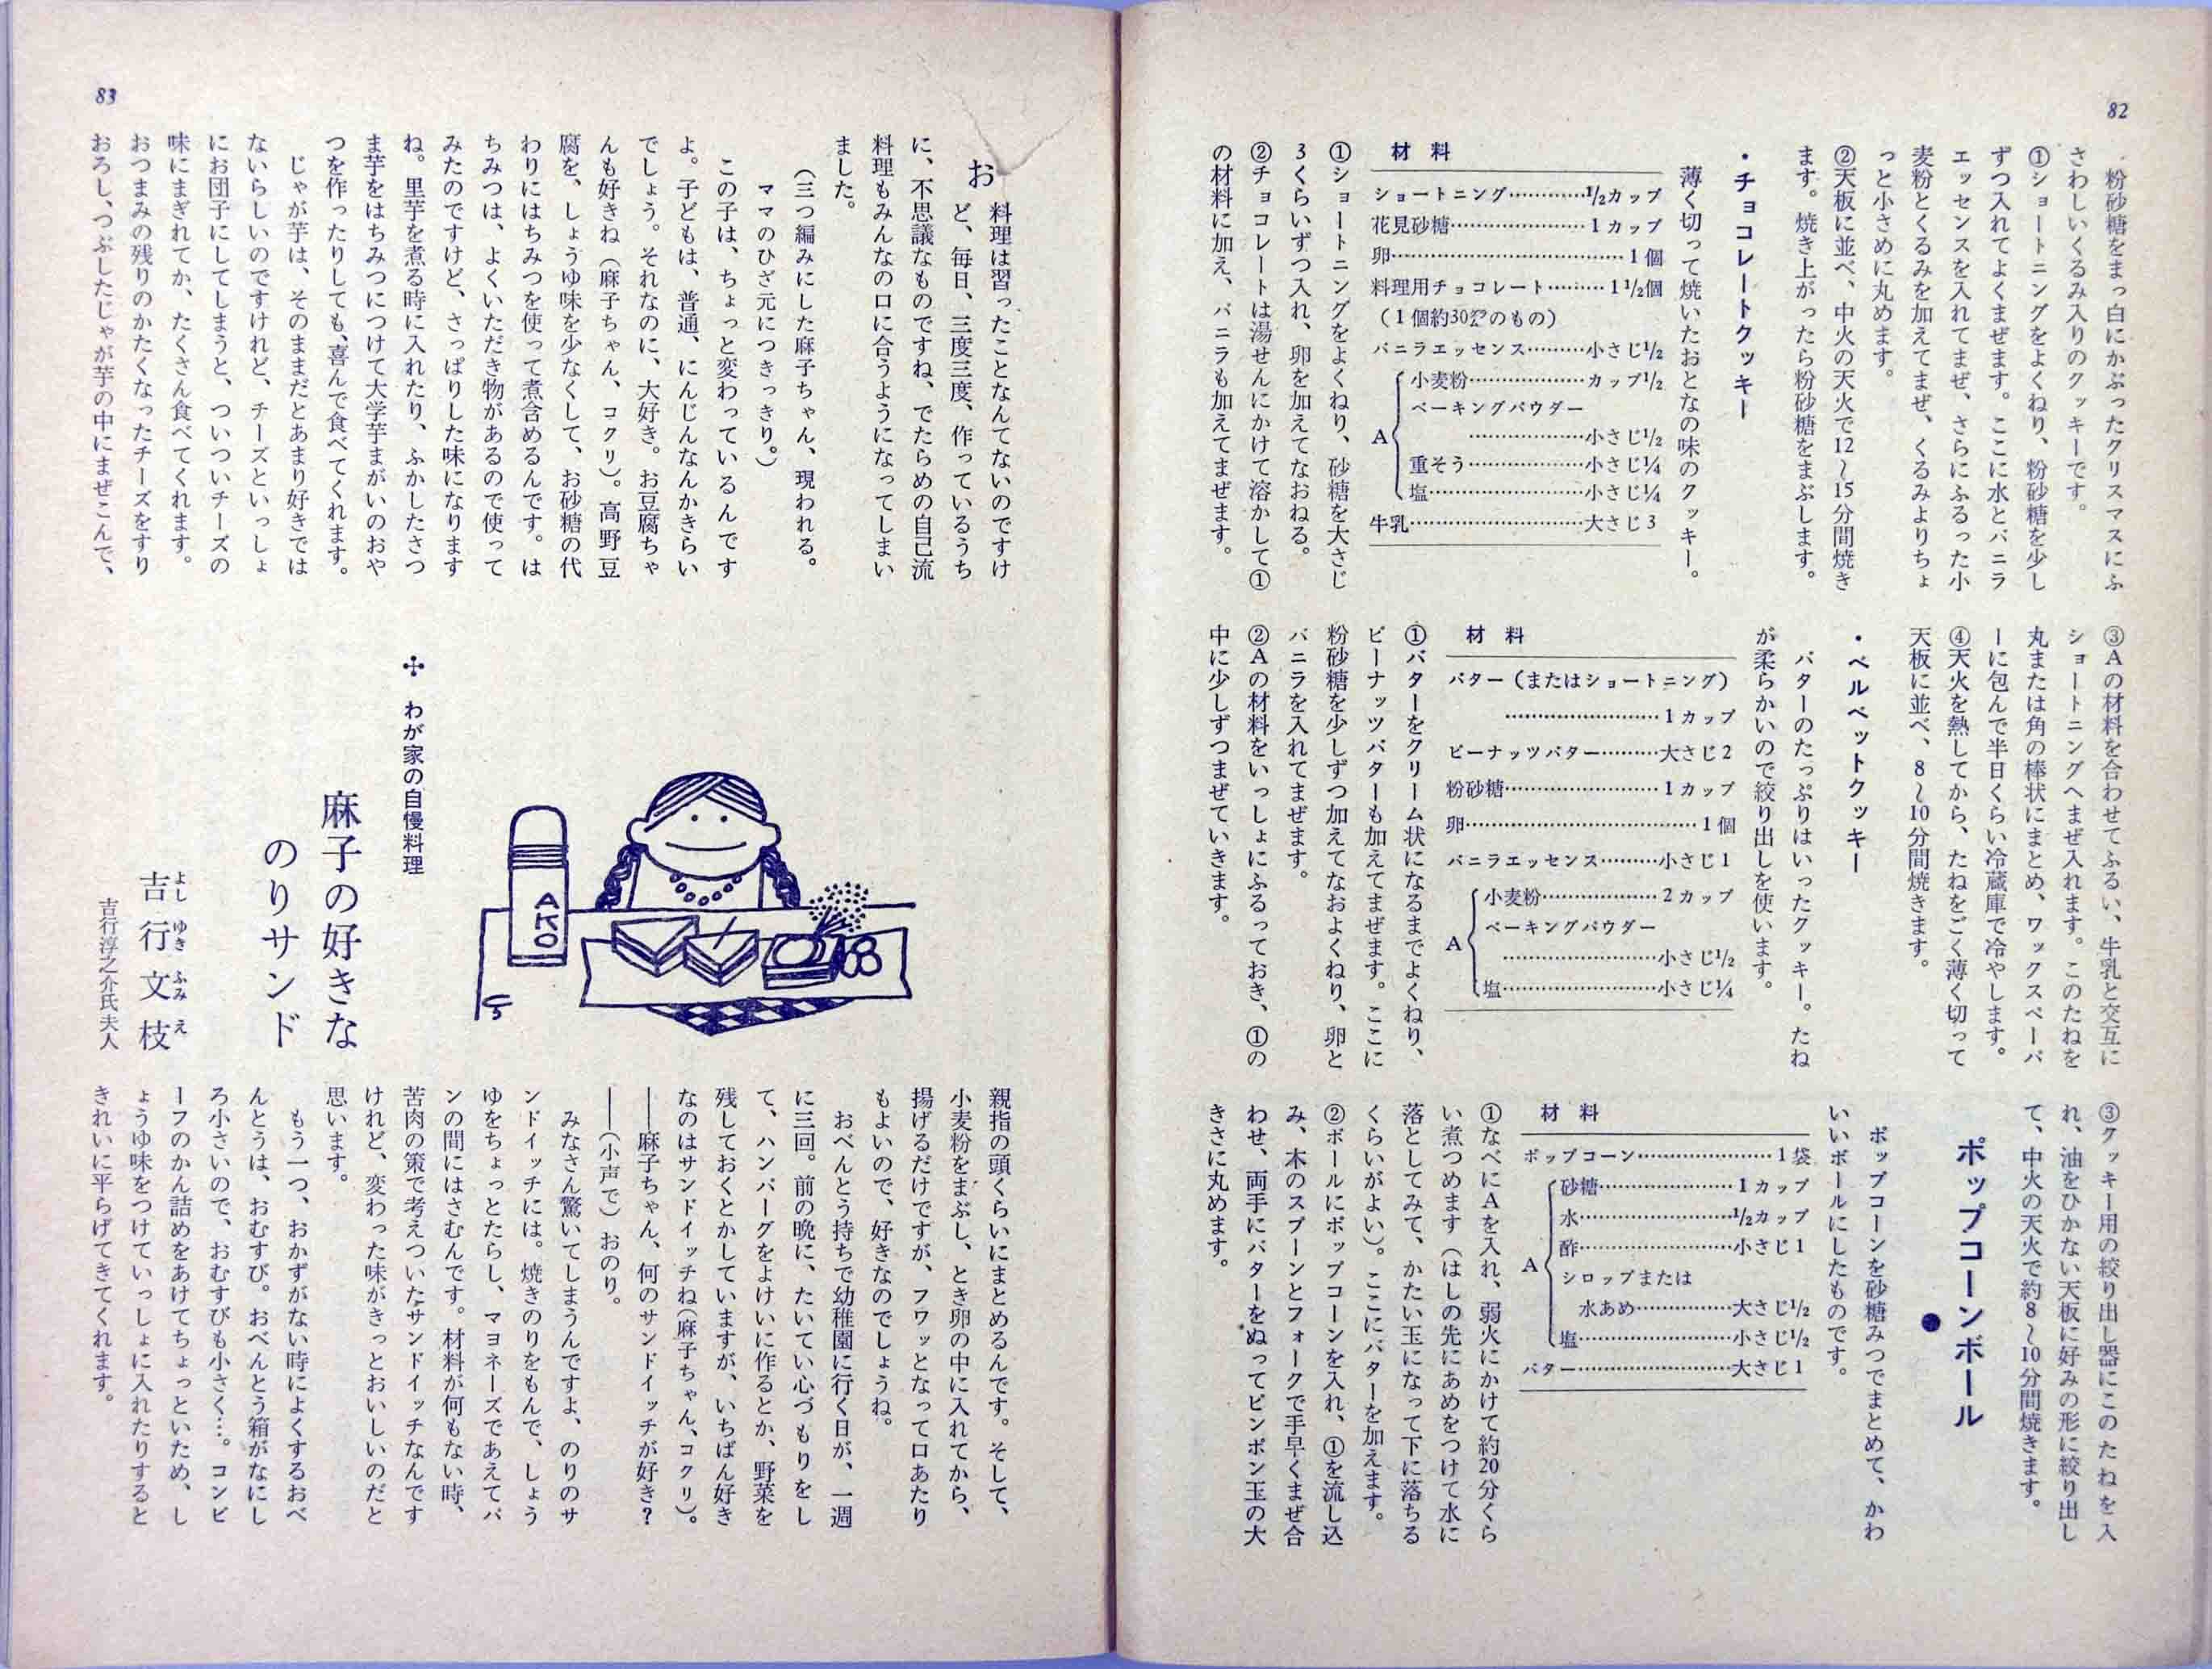 82
粉砂糖をまっ白にかぶったクリスマスにふ
さわしいくるみ入りのクッキーです。
①ショートニングをよくねり、粉砂糖を少し
ずつ入れてよくまぜます。ここに水とバニラ
エッセンスを入れてまぜ、さらにふるった小
麦粉とくるみを加えてまぜ、くるみよりちょ
っと小さめに丸めます。
②天板に並べ、中火の天火で12〜15分間焼き
ます。焼き上がったら粉砂糖をまぶします。
・チョコレートクッキー
薄く切って焼いたおとなの味のクッキー。
材料
ショートニング…………½カップ
花見砂糖…………………1カップ
卵……………………………1個
料理用チョコレート………1½個
（1個約30㌘のもの）
バニラエッセンス………小さじ½
A
小麦粉………………カップ½
ベーキングパウダー
………………小さじ½
重そう………………小さじ¼
塩……………………小さじ¼
牛乳………………………大さじ3
①ショートニングをよくねり、砂糖を大さじ
3くらいずつ入れ、卵を加えてなおねる。
②チョコレートは湯せんにかけて溶かして①
の材料に加え、バニラも加えてまぜます。
③Aの材料を合わせてふるい、牛乳と交互に
ショートニングへまぜ入れます。このたねを
丸または角の棒状にまとめ、ワックスペーパ
ーに包んで半日くらい冷蔵庫で冷やします。
④天火を熱してから、たねをごく薄く切って
天板に並べ、8〜10分間焼きます。
・ベルベットクッキー
バターのたっぷりはいったクッキー。たね
が柔らかいので絞り出しを使います。
材料
バター（またはショートニング）
……………………1カップ
ピーナッツバター………大さじ2
粉砂糖……………………1カップ
卵……………………………1個
バニラエッセンス………小さじ1
A
小麦粉………………2カップ
ベーキングパウダー
……………………小さじ½
塩……………………小さじ¼
①バターをクリーム状になるまでよくねり、
ピーナッツバターも加えてまぜます。ここに
粉砂糖を少しずつ加えてなおよくねり、卵と
バニラを入れてまぜます。
②Aの材料をいっしょにふるっておき、①の
中に少しずつまぜていきます。
③クッキー用の絞り出し器にこのたねを入
れ、油をひかない天板に好みの形に絞り出し
て、中火の天火で約8〜10分間焼きます。
ポップコーンボール●
ポップコーンを砂糖みつでまとめて、かわ
いいボールにしたものです。
材料
ポップコーン…………………1袋
A
砂糖…………………1カップ
水……………………½カップ
酢……………………小さじ1
シロップまたは
水あめ……………大さじ½
塩……………………小さじ½
バター……………………大さじ1
①なべにAを入れ、弱火にかけて約20分くら
い煮つめます（はしの先にあめをつけて水に
落としてみて、かたい玉になって下に落ちる
くらいがよい）。ここにバターを加えます。
②ボールにポップコーンを入れ、①を流し込
み、木のスプーンとフォークで手早くまぜ合
わせ、両手にバターをぬってピンポン玉の大
きさに丸めます。
83
お料理は習ったことなんてないのですけ
ど、毎日、三度三度、作っているうち
に、不思議なものですね、でたらめの自己流
料理もみんなの口に合うようになってしまい
ました。
（三つ編みにした麻子ちゃん、現われる。
ママのひざ元につきっきり。）
この子は、ちょっと変わっているんです
よ。子どもは、普通、にんじんなんかきらい
でしょう。それなのに、大好き。お豆腐ちゃ
んも好きね（麻子ちゃん、コクリ）。高野豆
腐を、しょうゆ味を少なくして、お砂糖の代
わりにはちみつを使って煮含めるんです。は
ちみつは、よくいただき物があるので使って
みたのですけど、さっぱりした味になります
ね。里芋を煮る時に入れたり、ふかしたさつ
ま芋をはちみつにつけて大学芋まがいのおや
つを作ったりしても、喜んで食べてくれます。
じゃが芋は、そのままだとあまり好きでは
ないらしいのですけれど、チーズといっしょ
にお団子にしてしまうと、ついついチーズの
味にまぎれてか、たくさん食べてくれます。
おつまみの残りのかたくなったチーズをすり
おろし、つぶしたじゃが芋の中にまぜこんで、
✣ わが家の自慢料理
麻子の好きな
のりサンド
吉行文枝
よしゆきふみえ
吉行淳之介氏夫人
AKO
親指の頭くらいにまとめるんです。そして、
小麦粉をまぶし、とき卵の中に入れてから、
揚げるだけですが、フワッとなって口あたり
もよいので、好きなのでしょうね。
おべんとう持ちで幼稚園に行く日が、一週
に三回。前の晩に、たいてい心づもりをし
て、ハンバーグをよけいに作るとか、野菜を
残しておくとかしていますが、いちばん好き
なのはサンドイッチね（麻子ちゃん、コクリ）。
――麻子ちゃん、何のサンドイッチが好き？
――（小声で）おのり。
みなさん驚いてしまうんですよ、のりのサ
ンドイッチには。焼きのりをもんで、しょう
ゆをちょっとたらし、マヨネーズであえてパ
ンの間にはさむんです。材料が何もない時、
苦肉の策で考えついたサンドイッチなんです
けれど、変わった味がきっとおいしいのだと
思います。
もう一つ、おかずがない時によくするおべ
んとうは、おむすび。おべんとう箱がなにし
ろ小さいので、おむすびも小さく…。コンビ
ーフのかん詰めをあけてちょっといため、し
ょうゆ味をつけていっしょに入れたりすると
きれいに平らげてきてくれます。